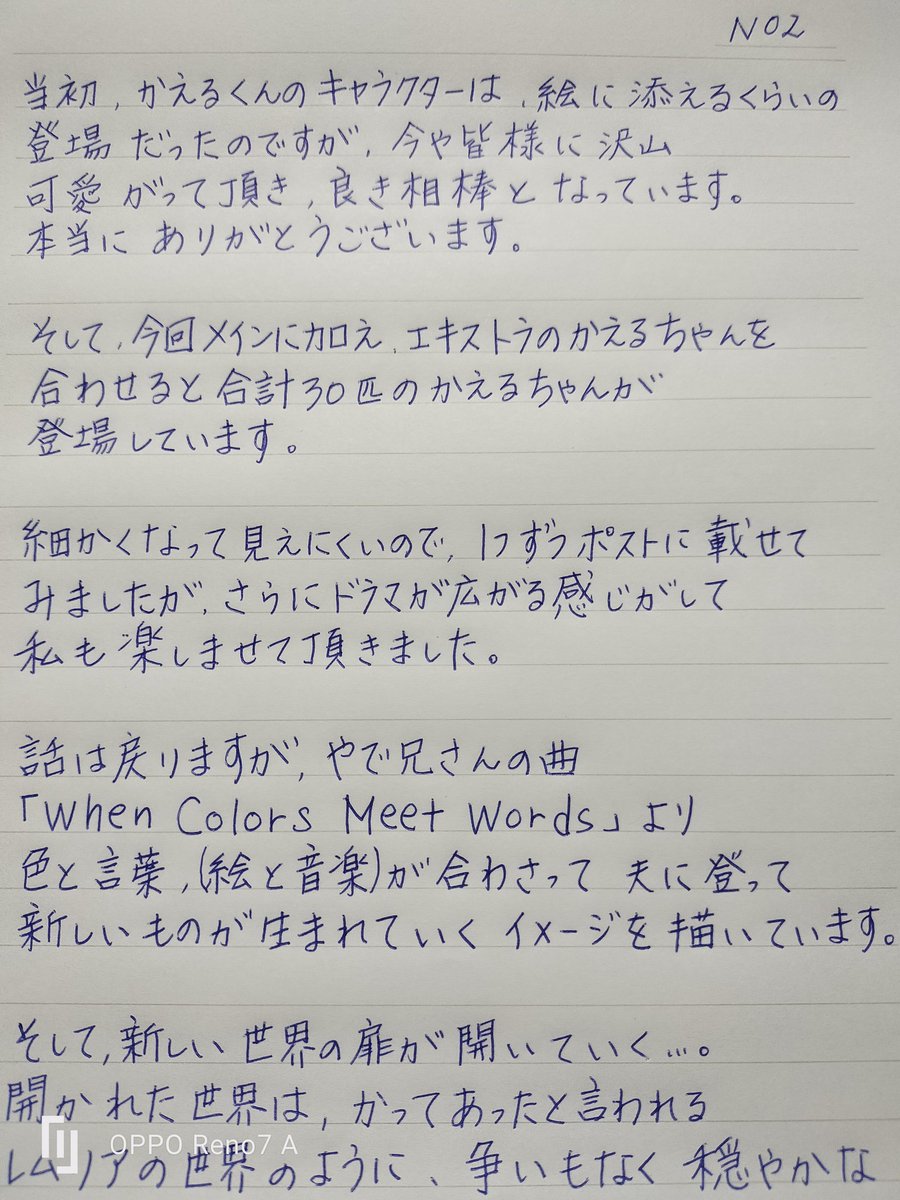 NO2
当初、かえるくんのキャラクターは、絵に添えるくらいの
登場だったのですが、今や皆様に沢山
可愛がって頂き、良き相棒となっています。
本当にありがとうございます。
そして、今回メインに加え、エキストラのかえるちゃんを
合わせると合計30匹のかえるちゃんが
登場しています。
細かくなって見えにくいので、1つずつポストに載せて
みましたが、さらにドラマが広がる感じがして
私も楽しませて頂きました。
話は戻りますが、やで兄さんの曲
「When Colors Meet Words」より
色と言葉、(絵と音楽)が合わさって 天に登って
新しいものが生まれていくイメージを描いています。
そして、新しい世界の扉が開いていく…。
開かれた世界は、かつてあったと言われる
レムリアの世界のように、争いもなく穏やかな
OPPO Reno7 A